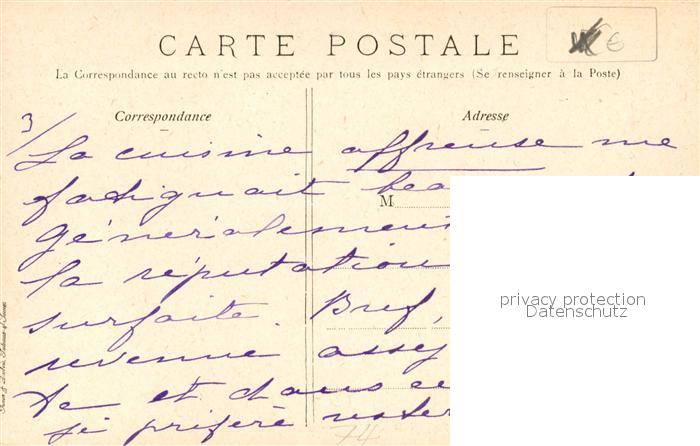 CARTE POSTALE
La Correspondance au recto n'est pas acceptée par tous les pays étrangers (Se renseigner à la Poste)
Correspondance
Adresse
3/
La cuisine affreuse me
fatiguait
M
Généralement
la réputation
surfaite. Bref,
revenue assez
et dans ce
je préfère rester
74
privacy protection
Datenschutz